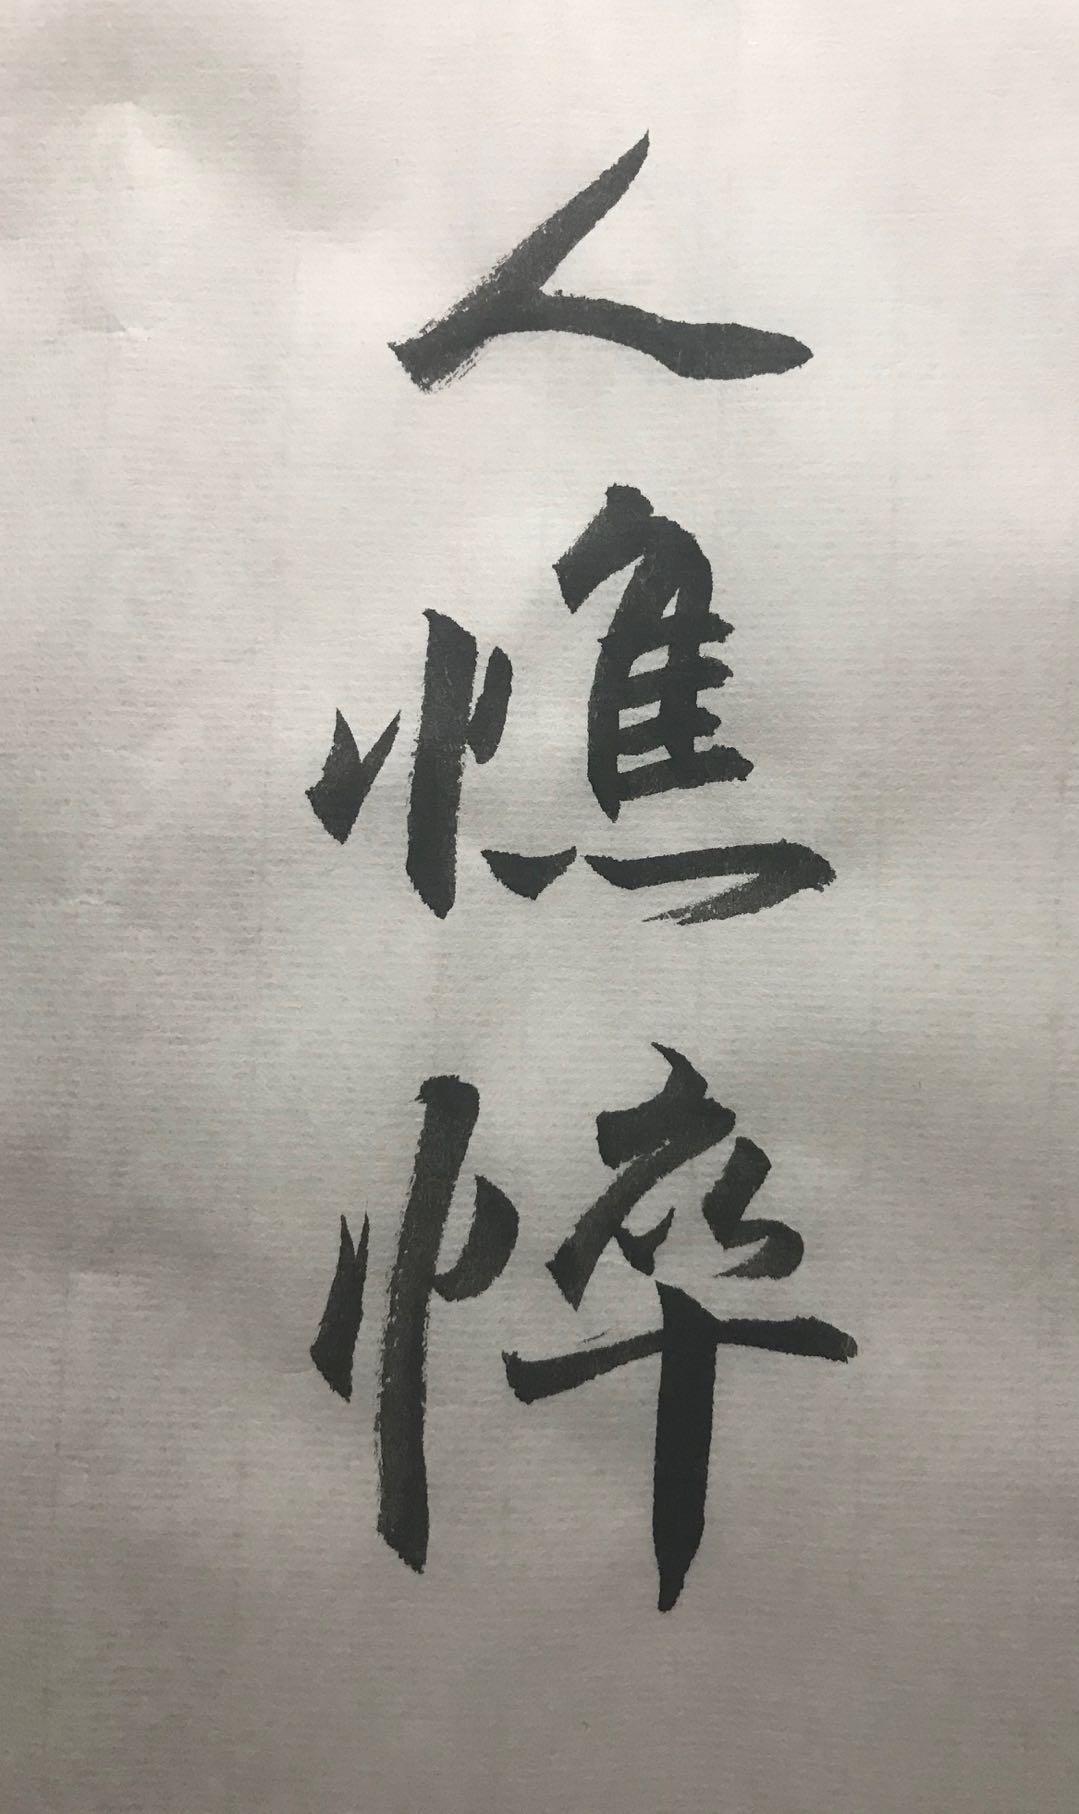 人憔悴